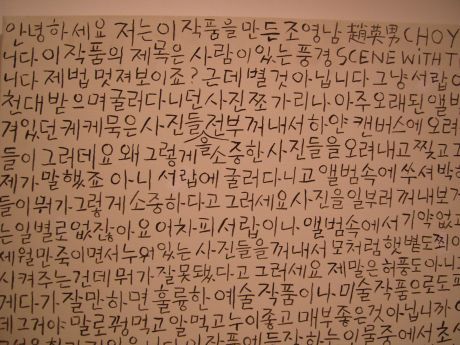 안녕하세요 저는 이 작품을 만든 조영남 趙英男 CHOY
니다 이 작품의 제목은 사람이 있는 풍경 SCENE WITH T
니다 제법 멋져보이죠? 근데 별것 아닙니다 그냥 서랍
천대 받으며 굴러다니던 사진쪼가리나 아주오래된 앨범
겨있던 케케묵은 사진들 전부 꺼내서 하얀 캔버스에 오려
들이 그러데요 왜 그렇게 을 소중한 사진들을 오려내고 찢고 그
제가 말했죠 아니 서랍에 굴러다니고 앨범속에 쑤셔박혀
들이 뭐가 그렇게 소중하다고 그러세요 사진을 일부러 꺼내보
는 일 별로 없잖아요 어차피 서랍이나 앨범속에서 기약없
세월만 죽이면서 누워있는 사진들을 꺼내서 모처럼 햇볕도 쬐
시켜주는건데 뭐가 잘못됐다고 그러세요 제말은 허풍도 아니
게다가 잘만하면 훌륭한 예술작품이나 미술작품으로도
데 그거야 말로 꿩먹고 알먹고 누이좋고 매부좋은것 아닙니까
이 작품에 등장하는 인물중에서 초